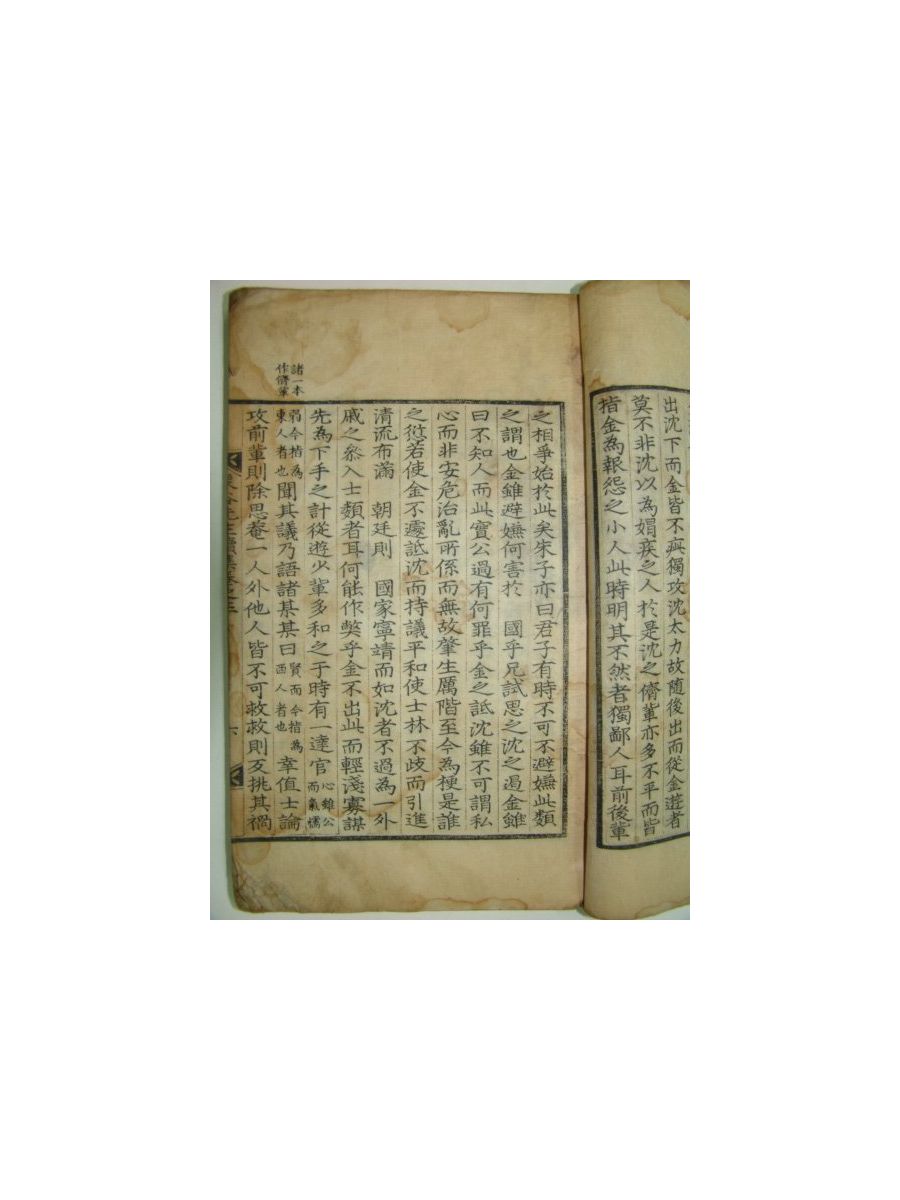 出沈下而金皆不疵獨攻沈太力故隨後出而從金遊者
莫不非沈以為媢疾之人於是沈之儕輩亦多不平而皆
指金為報怨之小人此時明其不然者獨鄙人耳前後輩
之相爭始於此矣朱子亦曰君子有時不可不避嫌此類
之謂也金雖避嫌何害於　國乎兄試思之沈之遏金雖
曰不知人而此實公過有何罪乎金之詆沈雖不可謂私
心而非安危治亂所係而無故肇生厲階至今為梗是誰
之愆若使金不遽詆沈而持議平和使士林不歧而引進
清流布滿　朝廷則　國家寧靖而如沈者不過為一外
戚之叅入士類者耳何能作獘乎金不出此而輕淺寡謀
先為下手之計從遊少輩多和之于時有一達官心雖公而氣懦
弱今指為東人者也聞其議乃語諸某某曰賢而今指為西人者也幸值士論
攻前輩則除思菴一人外他人皆不可救救則反挑其禍
諸一本
作儕輩